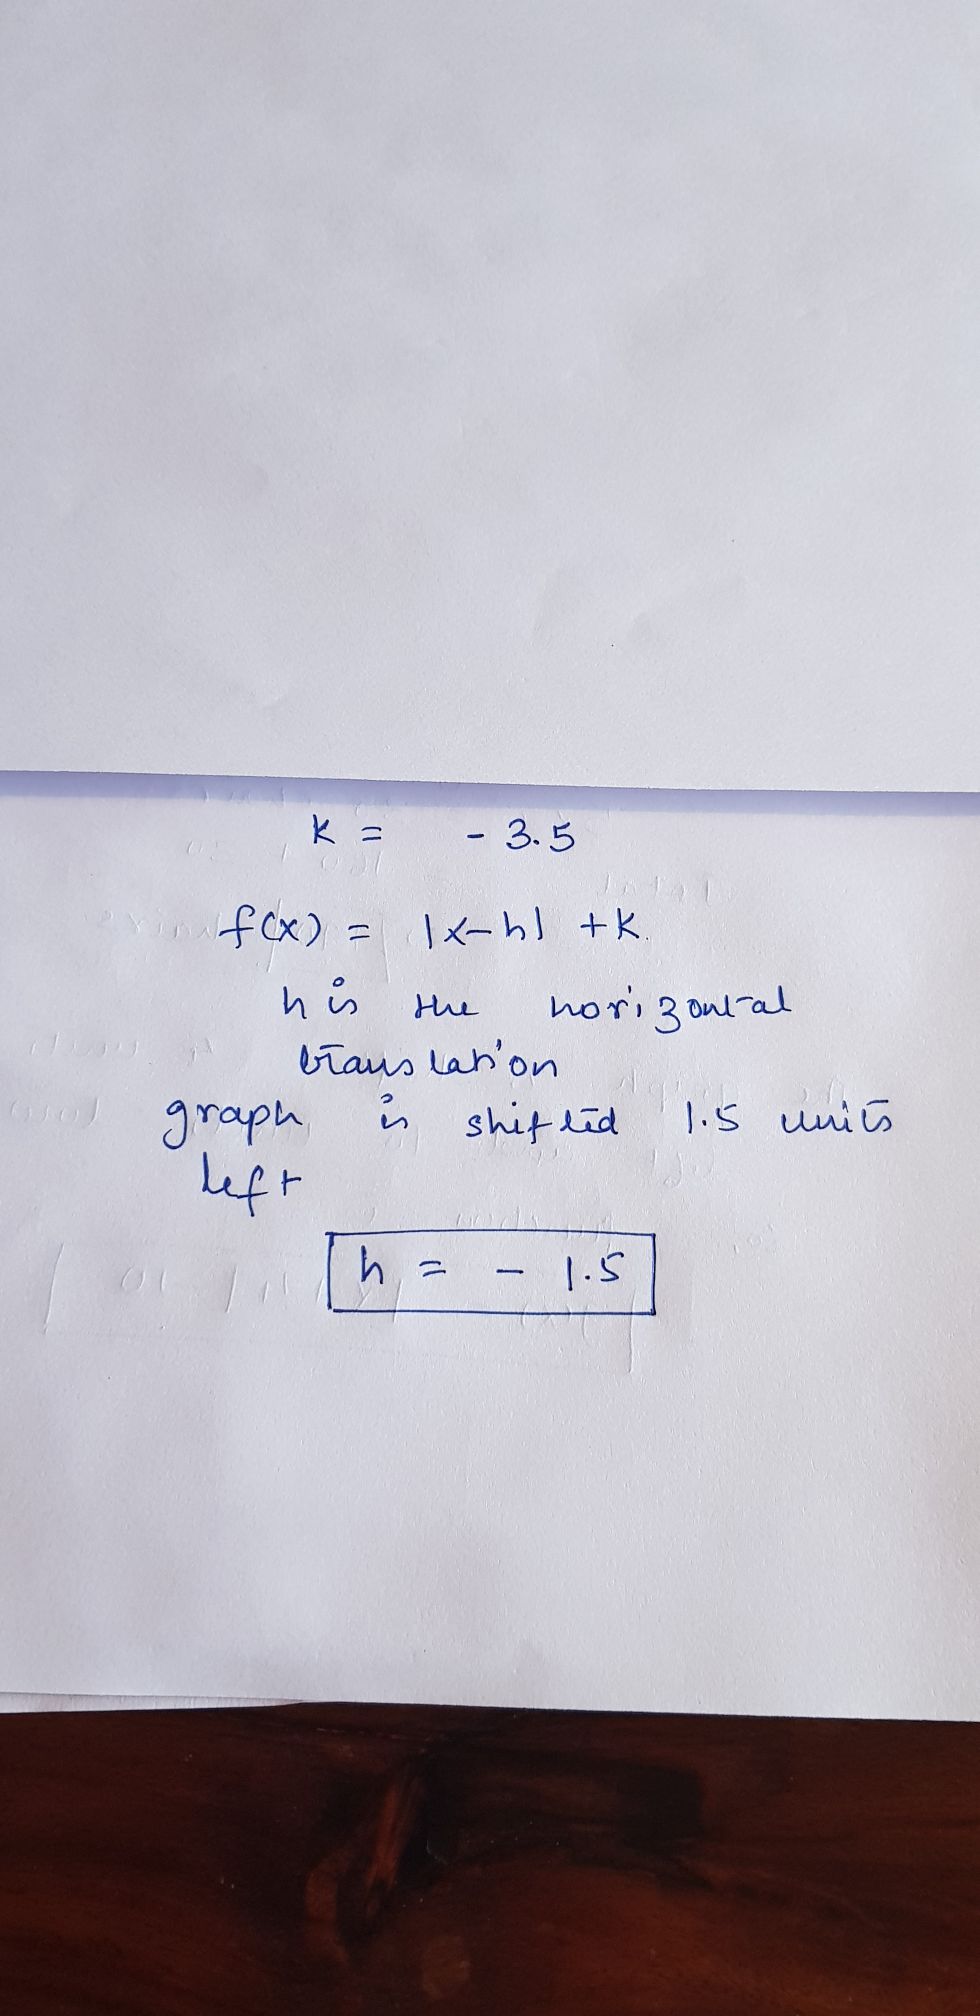 k = - 3.5
f(x) = |x-h| + k.
h is the horizontal
translation
graph is shifted 1.5 units
left
h = - 1.5